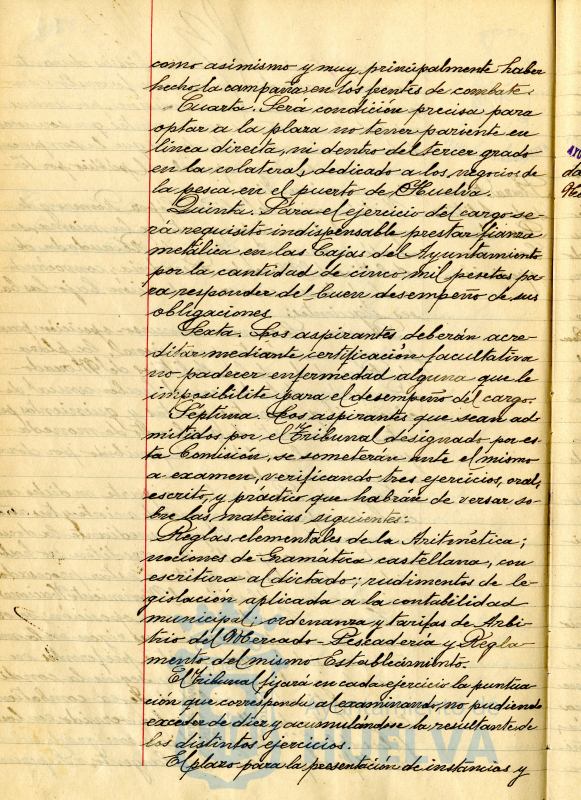 como asimismo y muy principalmente haber
hecho la campaña en los frentes de combate.
Cuarta. Será condición precisa para
optar a la plaza no tener pariente en
línea directa, ni dentro del tercer grado
en la colateral, dedicado a los negocios de
la pesca en el puerto de Huelva.
Quinta. Para el ejercicio del cargo se-
rá requisito indispensable prestar fianza
metálica en las Cajas del Ayuntamiento
por la cantidad de cinco mil pesetas pa-
ra responder del buen desempeño de sus
obligaciones.
Sexta. Los aspirantes deberán acre-
ditar mediante certificación facultativa
no padecer enfermedad alguna que le
imposibilite para el desempeño del cargo.
Séptima. Los aspirantes que sean ad-
mitidos por el Tribunal designado por es-
ta Comisión, se someterán ante el mismo
a examen, verificando tres ejercicios, oral,
escrito, y práctico que habrán de versar so-
bre las materias siguientes:
Reglas elementales de la Aritmética;
nociones de Gramática castellana, con
escritura al dictado; rudimentos de le-
gislación aplicada a la contabilidad
municipal; ordenanza y tarifas de Arbi-
trio del Mercado-Pescadería y Regla-
mento del mismo Establecimiento.
El tribunal fijará en cada ejercicio la puntua-
ción que corresponda al examinando, no pudiendo
exceder de diez y acumulándose la resultante de
los distintos ejercicios.
HUELVA
El plazo para la presentación de instancias y